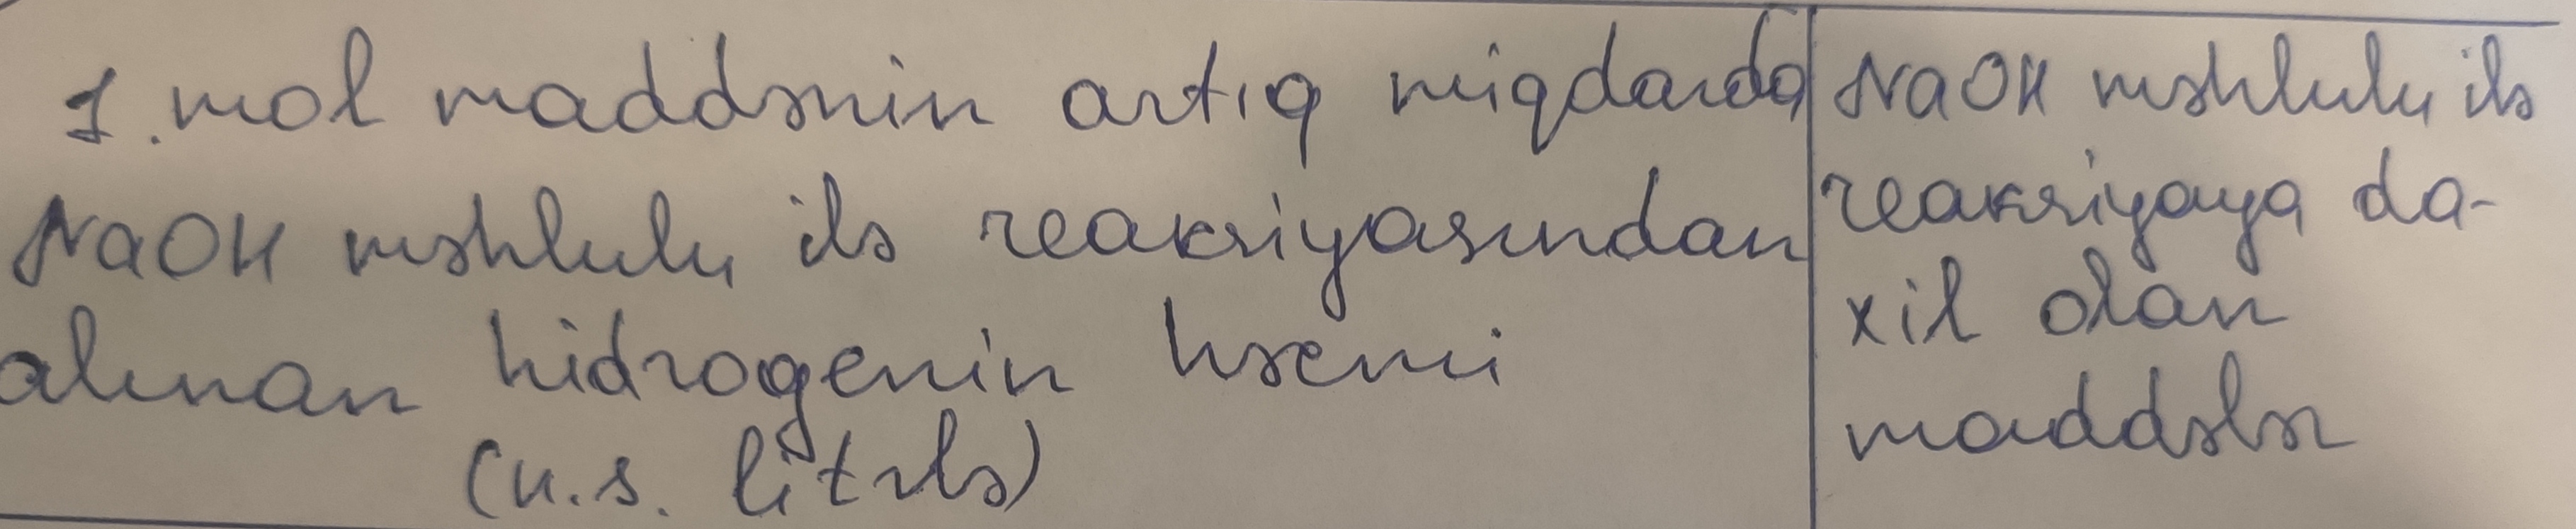 1. mol maddənin artıq miqdarda
NaOH məhlulu ilə reaksiyasından
alınan hidrogenin həcmi
(n.s. litrlə)
NaOH məhlulu ilə
reaksiyaya da-
xil olan
maddələr